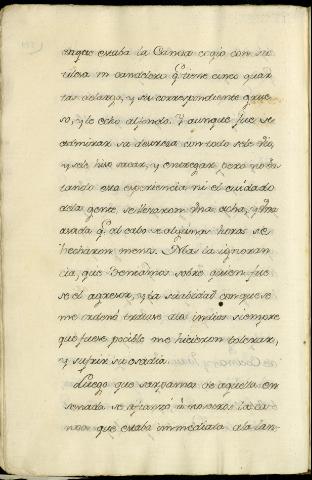 enque estaba la Canoa cogio con su
un candelero q.e tiene cinco quar
tas de largo, y su correspondiente grue
so, y le echo al fondo. Y aunque fue de
admirar su destreza con todo se le vio,
y se le hizo sacar, y entregar, pero no bas
tando esta experiencia ni el cuidado
de la gente, se llevaron una acha, y una
asada q.e al cabo de algunas horas se
hecharon menos. Mas la ignoran
cia, que teniamos sobre quien fue
se el agresor, y la suabidad con que se
me ordenó tratase alos indios siempre
que fuese pocible me hicieron tolerar,
y sufrir su osadia.
Luego que sarpamos de aquella en
senada se afianzó á nosotros la ca
noa que estaba immediata ala lan-